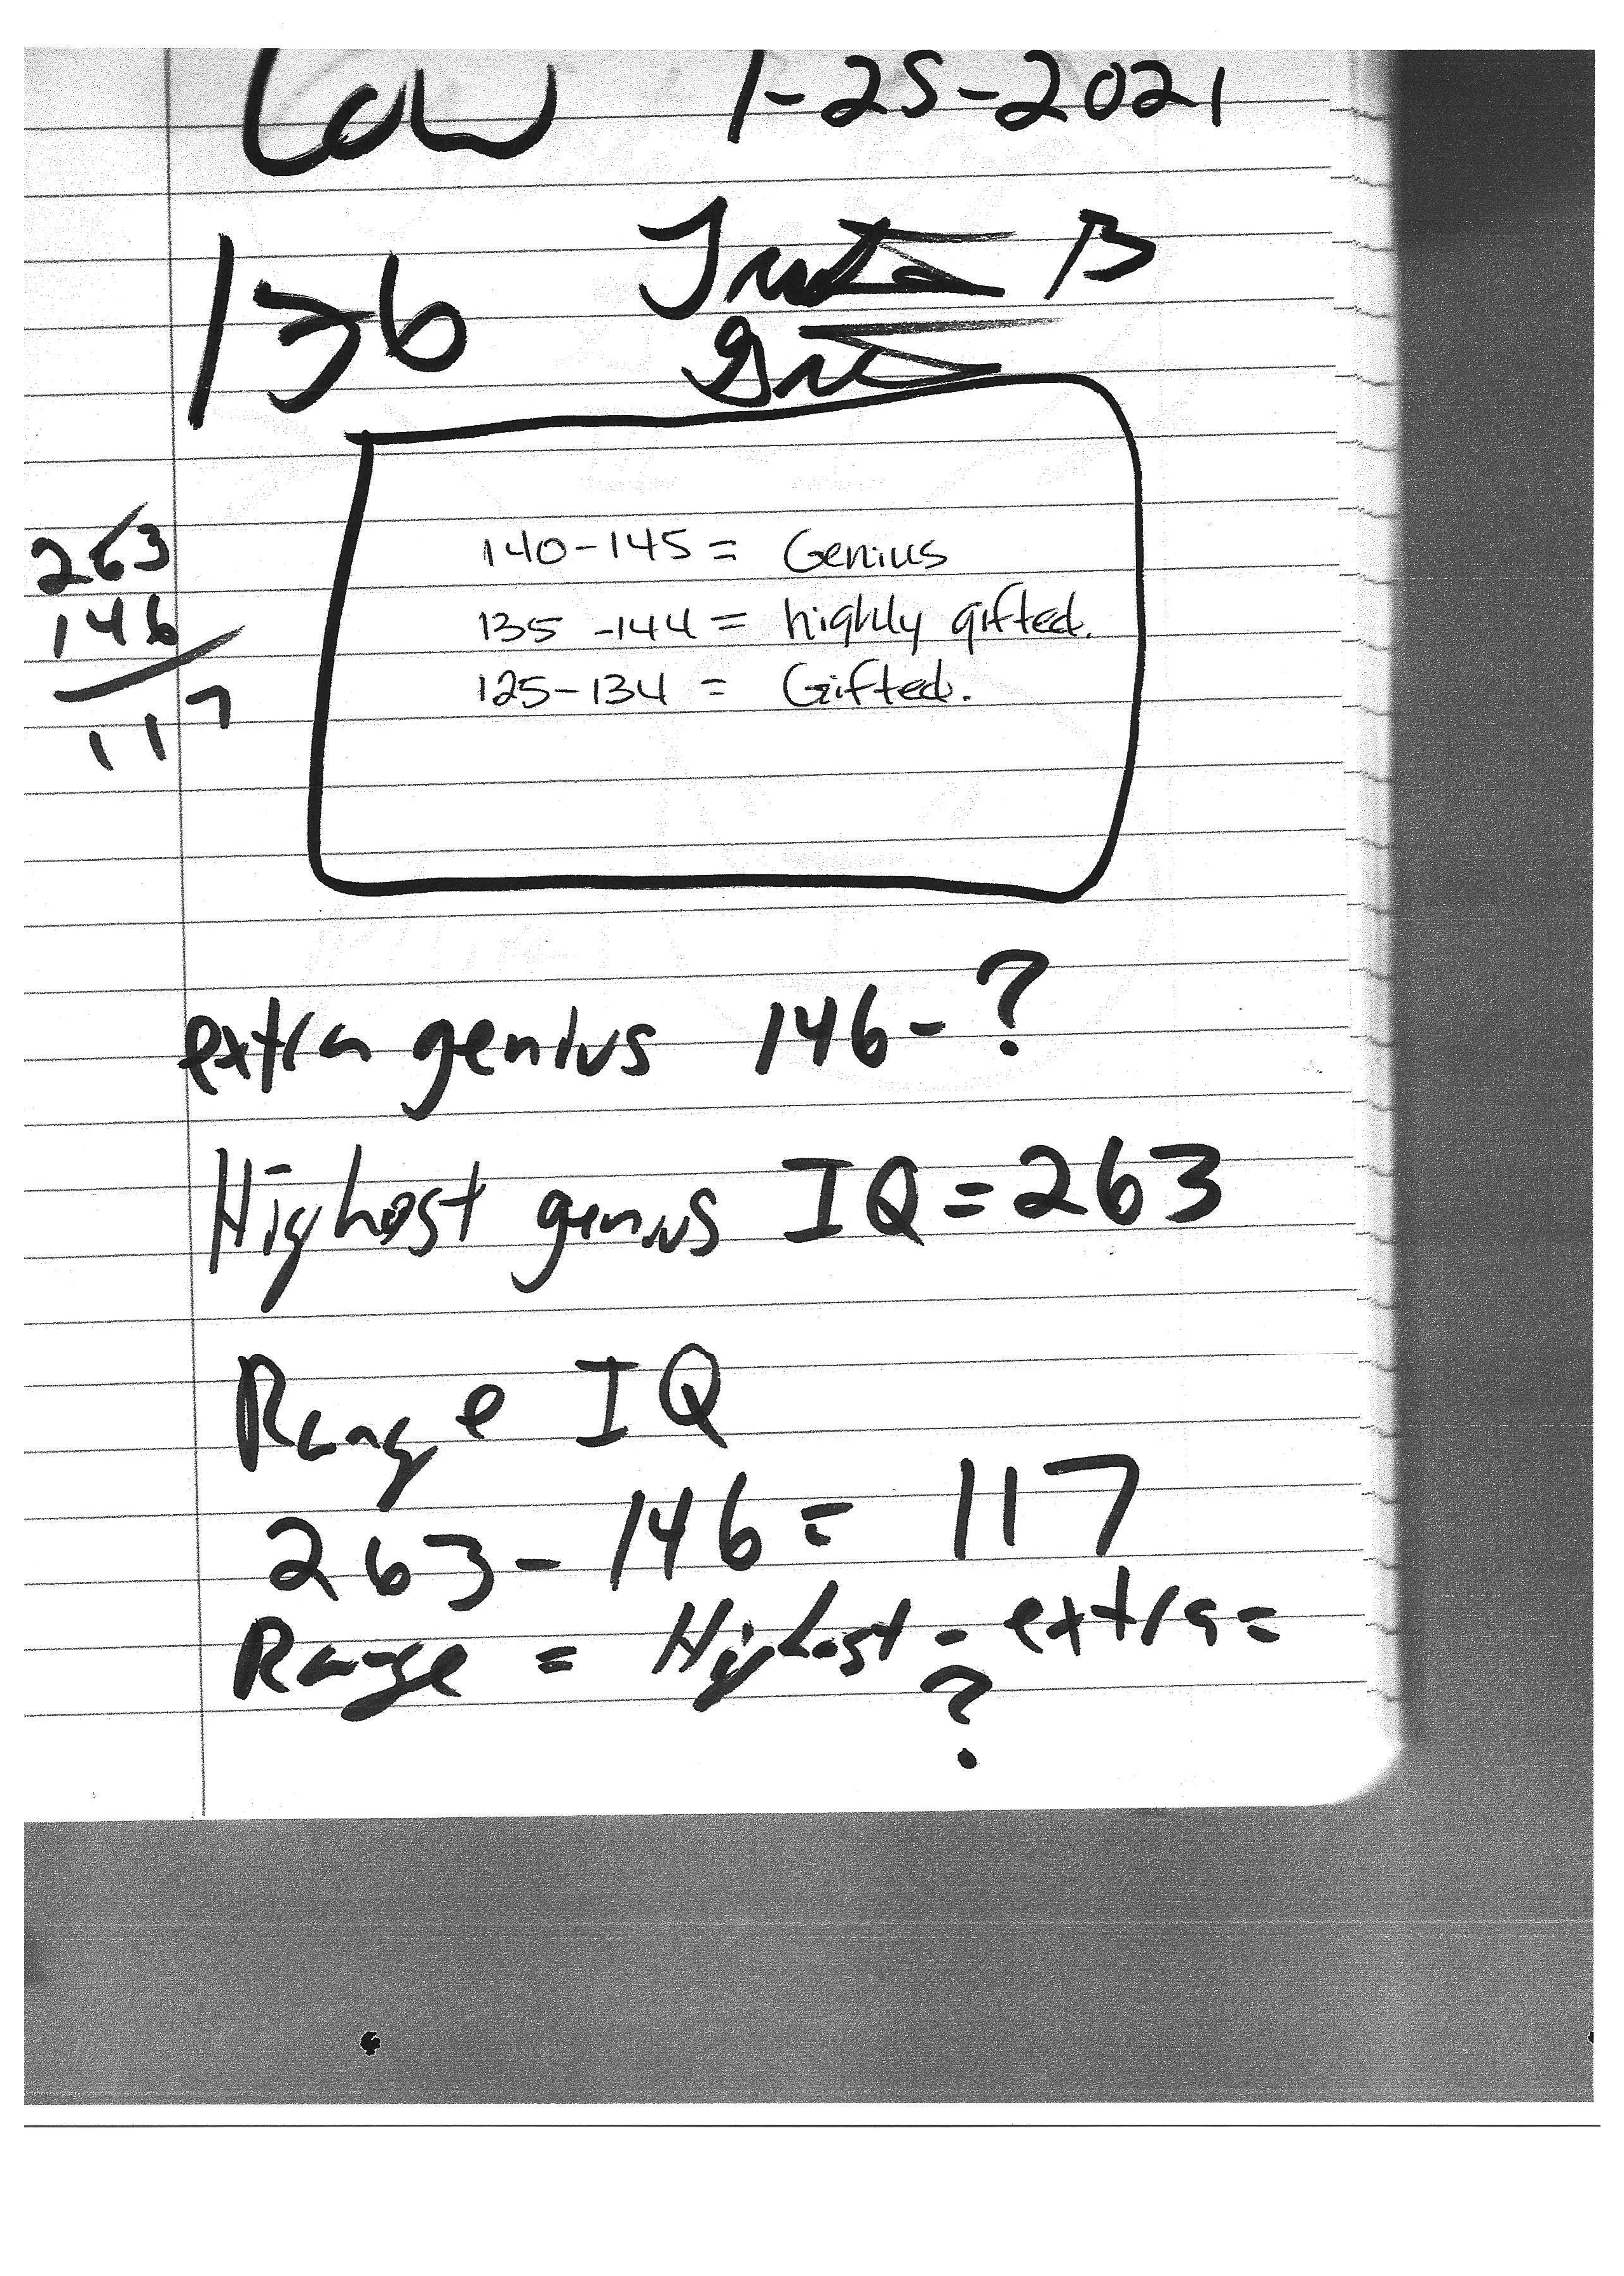 Law 1-25-2021
136
263
146
117
140-145 = Genius
135-144 = highly gifted.
125-134 = Gifted.
extra genius 146-?
Highest genius IQ=263
Range IQ
263-146= 117
Range = Highest - extra =
?